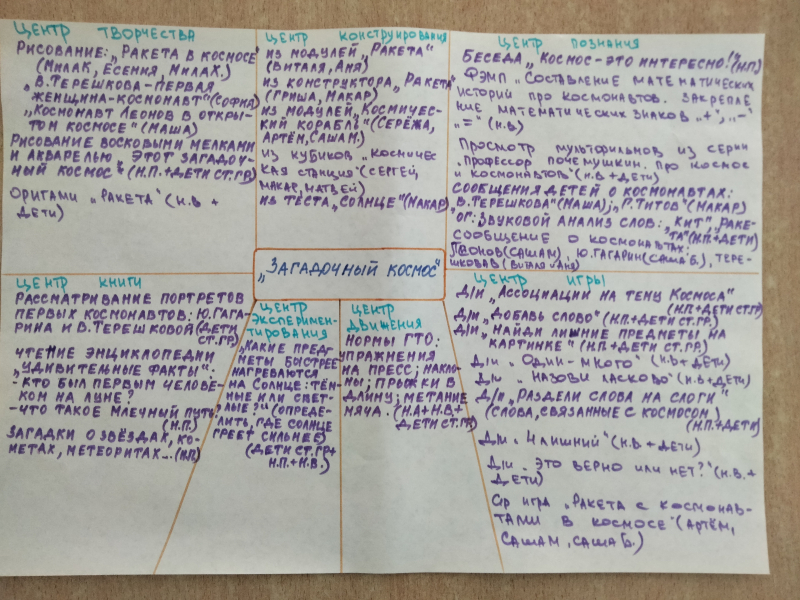 ЦЕНТР ТВОРЧЕСТВА
РИСОВАНИЕ: „РАКЕТА В КОСМОСЕ"
(МИЛАК, ЕСЕНИЯ, МИЛАХ.)
„В.ТЕРЕШКОВА-ПЕРВАЯ
ЖЕНЩИНА-КОСМОНАВТ" (СОФИЯ)
„КОСМОНАВТ ЛЕОНОВ В ОТКРЫ-
ТОМ КОСМОСЕ" (МАША)
РИСОВАНИЕ ВОСКОВЫМИ МЕЛКАМИ
И АКВАРЕЛЬЮ „ЭТОТ ЗАГАДОЧ-
НЫЙ КОСМОС" (Н.П.+ДЕТИ СТ.ГР)
ОРИГАМИ „РАКЕТА" (Н.В +
ДЕТИ)
ЦЕНТР КОНСТРУИРОВАНИЯ
ИЗ МОДУЛЕЙ „РАКЕТА"
(ВИТАЛЯ, АНЯ)
ИЗ КОНСТРУКТОРА „РАКЕТА"
(ГРИША, МАКАР)
ИЗ МОДУЛЕЙ „КОСМИЧЕС-
КИЙ КОРАБЛЬ" (СЕРЁЖА,
АРТЁМ, САШАМ.)
ИЗ КУБИКОВ „КОСМИЧЕС
КАЯ СТАНЦИЯ" (СЕРГЕЙ,
МАКАР, МАТВЕЙ)
ИЗ ТЕСТА „СОЛНЦЕ" (МАКАР)
ЦЕНТР ПОЗНАНИЯ
БЕСЕДА „КОСМОС-ЭТО ИНТЕРЕСНО!" (Н.П)
ФЭМП „СОСТАВЛЕНИЕ МАТЕМАТИЧЕСКИХ
ИСТОРИЙ ПРО КОСМОНАВТОВ. ЗАКРЕПЛЕ
НИЕ МАТЕМАТИЧЕСКИХ ЗНАКОВ „+", „-"
„=" (Н.В)
ПРОСМОТР МУЛЬТФИЛЬМОВ ИЗ СЕРИИ
„ПРОФЕССОР ПОЧЕМУШКИН. ПРО КОСМОС
И КОСМОНАВТОВ" (Н.В + ДЕТИ)
СООБЩЕНИЯ ДЕТЕЙ О КОСМОНАВТАХ:
„В.ТЕРЕШКОВА" (МАША); „Г.ТИТОВ" (МАКАР)
"ОГ: ЗВУКОВОЙ АНАЛИЗ СЛОВ: „КИТ", „РАКЕ-
ТА" (Н.П.+ДЕТИ)
СООБЩЕНИЕ О КОСМОНАВТАХ:
ЛЕОНОВ (САШАМ), Ю.ГАГАРИН (САША Б.), ТЕРЕ-
ШКОВАВ (ВИТАЛЯ и АНЯ)
„ЗАГАДОЧНЫЙ КОСМОС"
ЦЕНТР КНИГИ
РАССМАТРИВАНИЕ ПОРТРЕТОВ
ПЕРВЫХ КОСМОНАВТОВ: Ю.ГАГА-
РИНА И В.ТЕРЕШКОВОЙ (ДЕТИ
СТ.ГР)
ЧТЕНИЕ ЭНЦИКЛОПЕДИИ
„УДИВИТЕЛЬНЫЕ ФАКТЫ":
- КТО БЫЛ ПЕРВЫМ ЧЕЛОВЕ-
КОМ НА ЛУНЕ?
- ЧТО ТАКОЕ МЛЕЧНЫЙ ПУТЬ?
(Н.П.)
ЗАГАДКИ О ЗВЁЗДАХ, КО-
МЕТАХ, МЕТЕОРИТАХ... (Н.П.)
ЦЕНТР
ЭКСПЕРИМЕН-
ТИРОВАНИЯ
„КАКИЕ ПРЕД-
МЕТЫ БЫСТРЕЕ
НАГРЕВАЮТСЯ
НА СОЛНЦЕ: ТЁМ-
НЫЕ ИЛИ СВЕТ-
ЛЫЕ?" (ОПРЕДЕ-
ЛИТЬ, ГДЕ СОЛНЦЕ
ГРЕЕТ СИЛЬНЕЕ)
(ДЕТИ СТ.ГР+
Н.П.+Н.В.)
ЦЕНТР
ДВИЖЕНИЯ
НОРМЫ ГТО:
УПРАЖНЕНИЯ
НА ПРЕСС; НАКЛО-
НЫ; ПРЫЖКИ В
ДЛИНУ; МЕТАНИЕ
МЯЧА. (Н.А+Н.В+
ДЕТИ СТ.ГР)
ЦЕНТР ИГРЫ
Д/И „АССОЦИАЦИИ НА ТЕМУ КОСМОСА"
(Н.П+ДЕТИ СТ.ГР)
Д/И „ДОБАВЬ СЛОВО" (Н.П+ДЕТИ СТ.ГР.)
Д/И „НАЙДИ ЛИШНИЕ ПРЕДМЕТЫ НА
КАРТИНКЕ" (Н.П+ДЕТИ СТ.ГР.)
Д/И „ОДИН-МНОГО" (Н.В+ДЕТИ)
Д/И „НАЗОВИ ЛАСКОВО" (Н.В+ДЕТИ)
Д/И „РАЗДЕЛИ СЛОВА НА СЛОГИ"
(СЛОВА, СВЯЗАННЫЕ С КОСМОСОМ)
(Н.П+ДЕТИ)
Д/И „4 ЛИШНИЙ" (Н.В.+ДЕТИ)
Д/И „ЭТО ВЕРНО ИЛИ НЕТ?" (Н.В.+
ДЕТИ)
С/Р ИГРА „РАКЕТА С КОСМОНАВ-
ТАМИ В КОСМОСЕ" (АРТЁМ,
САШАМ, САША Б.)